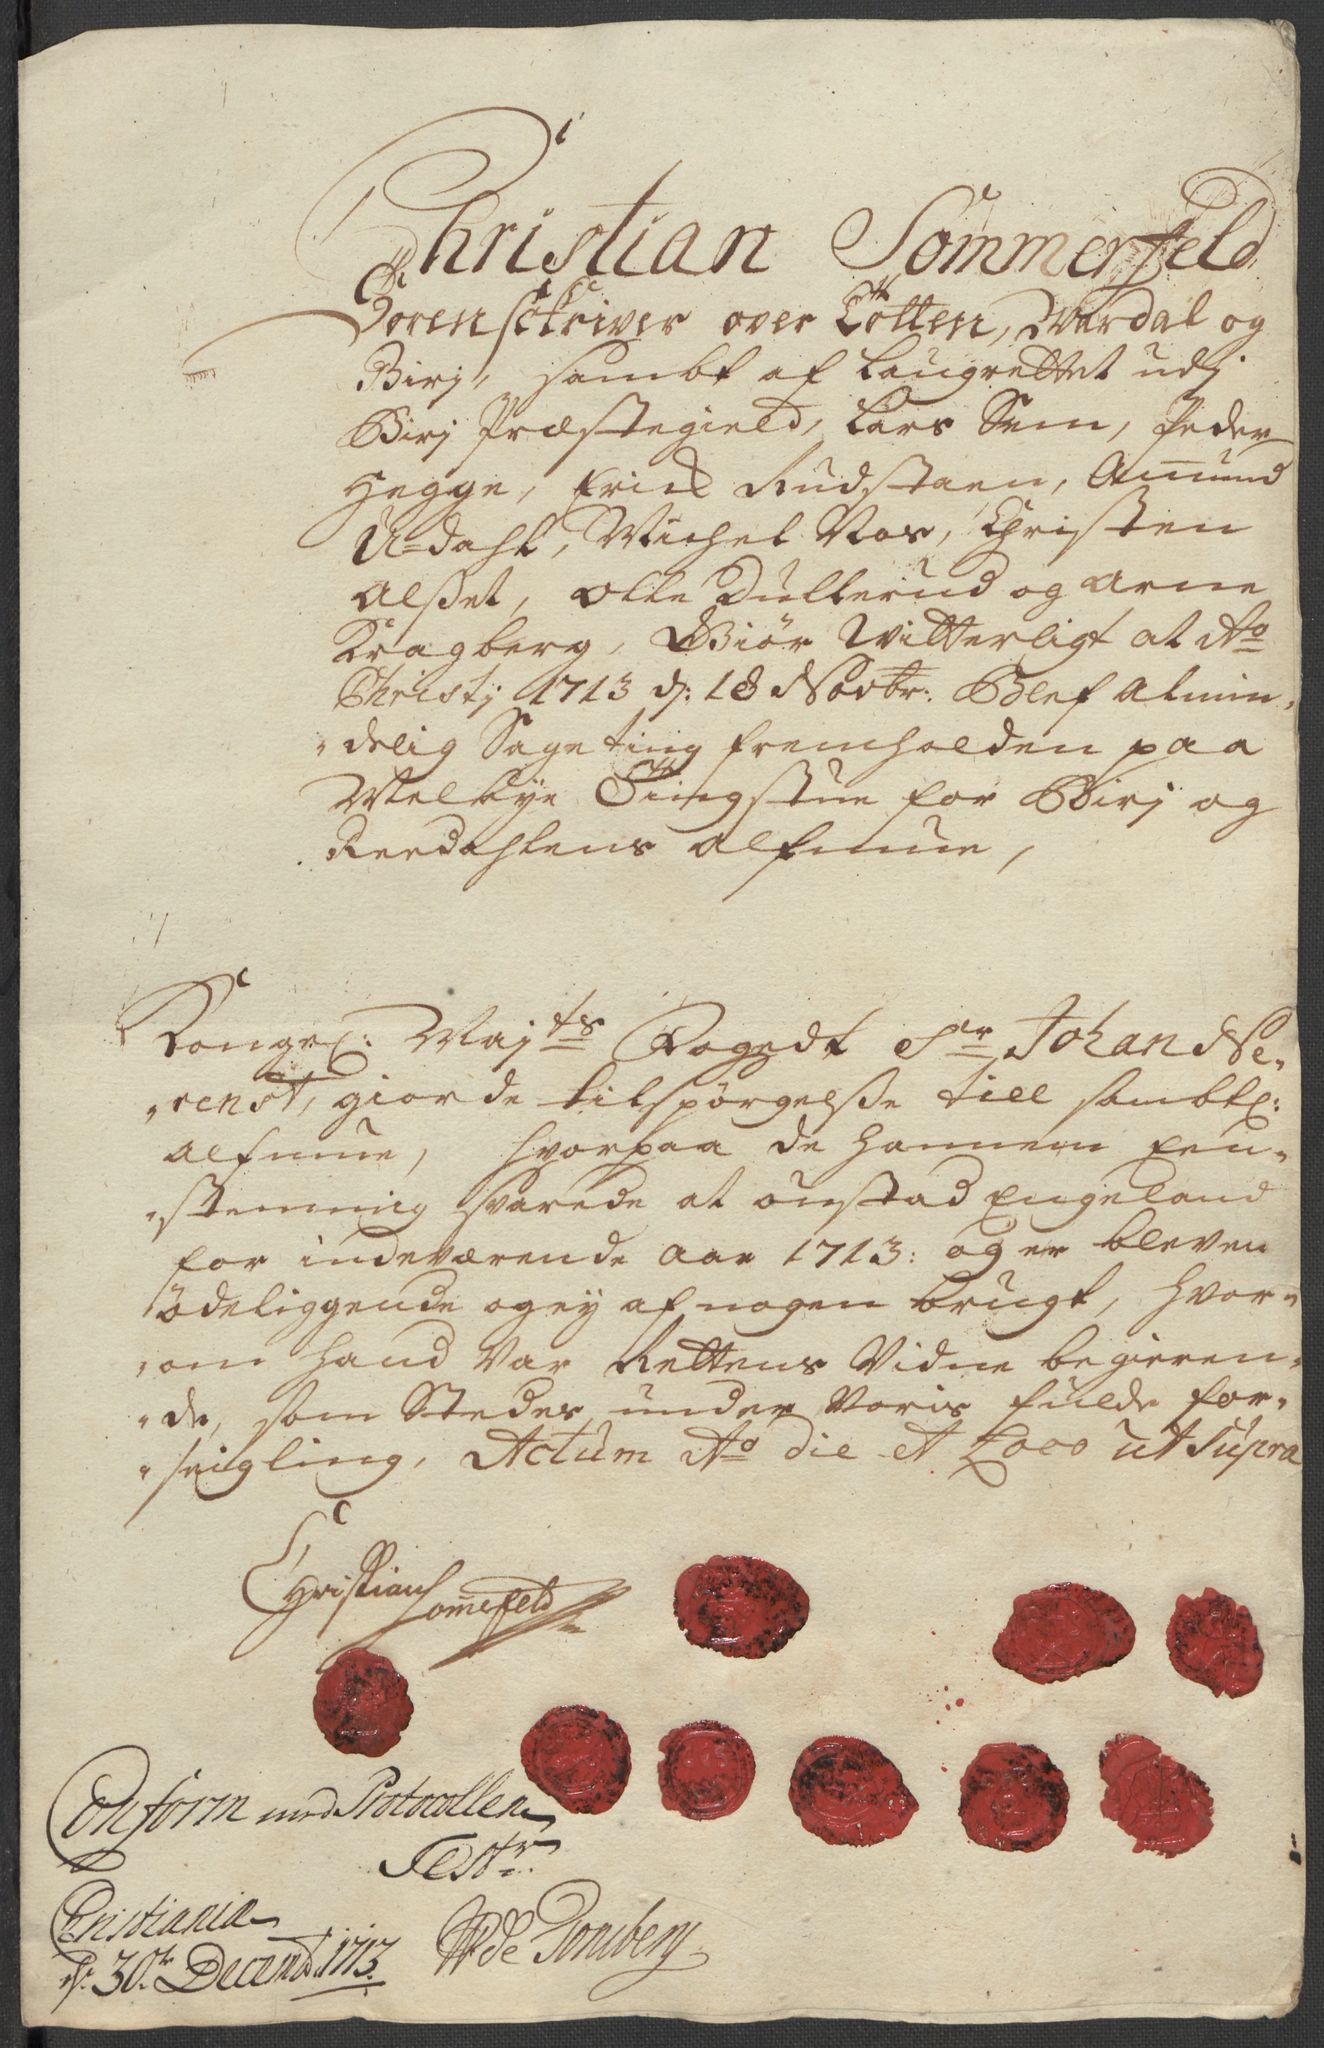 Christian Sommerfeld
Sorenschriver over Totten, Wardal og
Birj, sambt af Laugrettet udj
Birj Præstegield, Lars Sem, Peder
Hegge, Erich Rudstaen, Amund
Udahl, Michel Ros, Christen
Alset, Olle Dullerud og Arne
Kragberg, Giør Vitterligt at Ao
Christj 1713 d: 18 Novbr: Blef Almin-
-delig Sageting fremholden paa
Melbye Tingstue for Birj og
Reedahlens Almue,
Kongel: Mayts Fogedt Sr Johan Ne-
-renst, giorde tilspørgelse till sambtl:
Almue, hvorpaa de hannem Een-
-stemmig svarede at Onstad Engeland
for indeværende aar 1713: og er bleven
ødeliggende og ey af nogen brugt, hvor-
-om hand var Rettens Vidne begieren-
-de, som Stedes under Voris fulde for-
-seigling, Actum Ao die et Loco ut Supra
Christian Sommefeld
Conform med Protocollen
Test:
Christiania
d: 30te Decemb: 1713